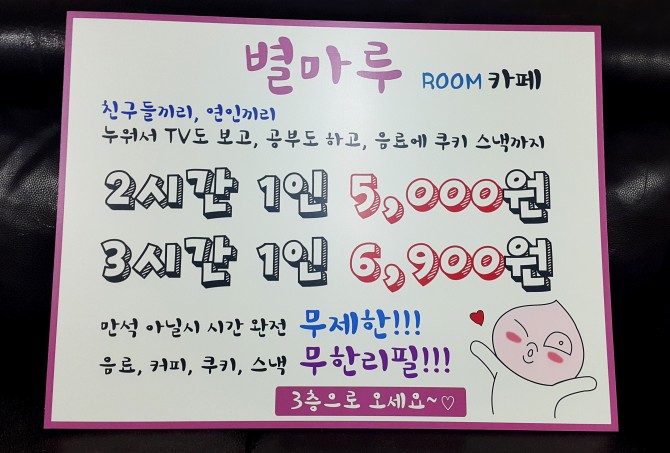 별마루 ROOM 카페
친구들끼리, 연인끼리
누워서 TV도 보고, 공부도 하고, 음료에 쿠키 스낵까지
2시간 1인 5,000원
3시간 1인 6,900원
만석 아닐시 시간 완전 무제한!!!
음료, 커피, 쿠키, 스낵 무한리필!!!
3층으로 오세요~♡